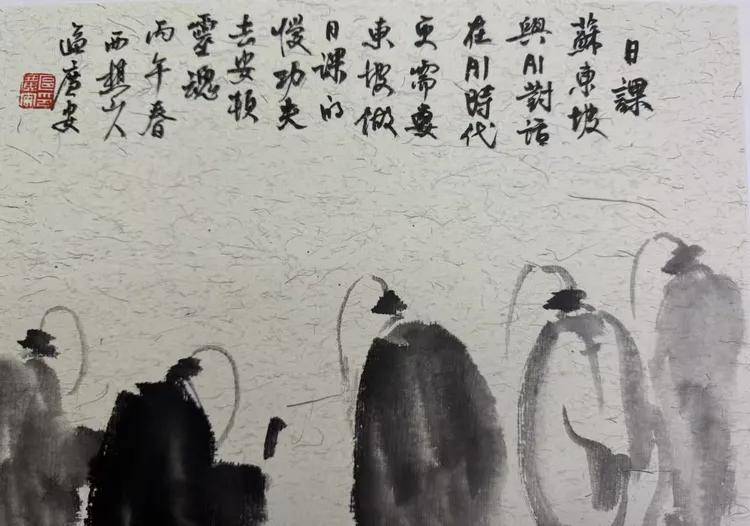 日課
蘇東坡
與AI對話
在AI時代
更需要
東坡做
日課的
慢功夫
去安頓
靈魂
丙午春
西樵山人
區广安